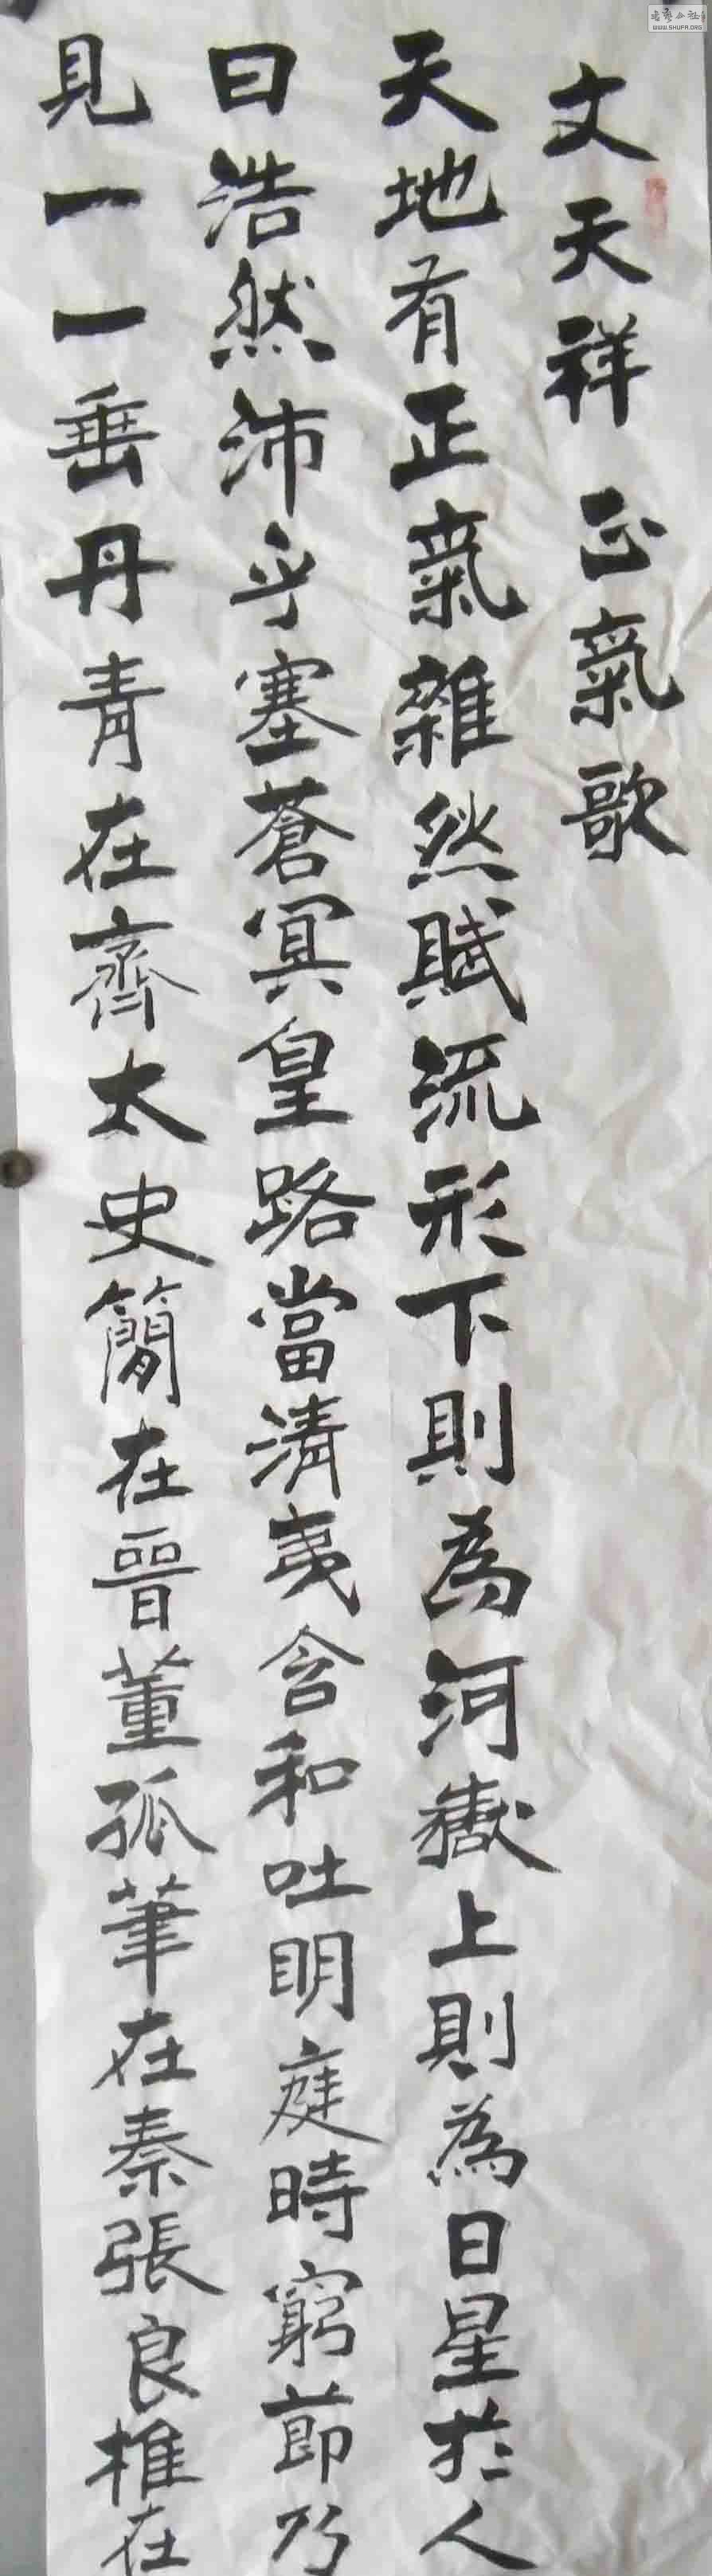 文天祥 正氣歌
天地有正氣雜然賦流形下則為河嶽上則為日星於人
曰浩然沛乎塞蒼冥皇路當清夷含和吐明庭時窮節乃
見一一垂丹青在齊太史簡在晉董孤筆在秦張良椎在
WWW.SHUFA.ORG